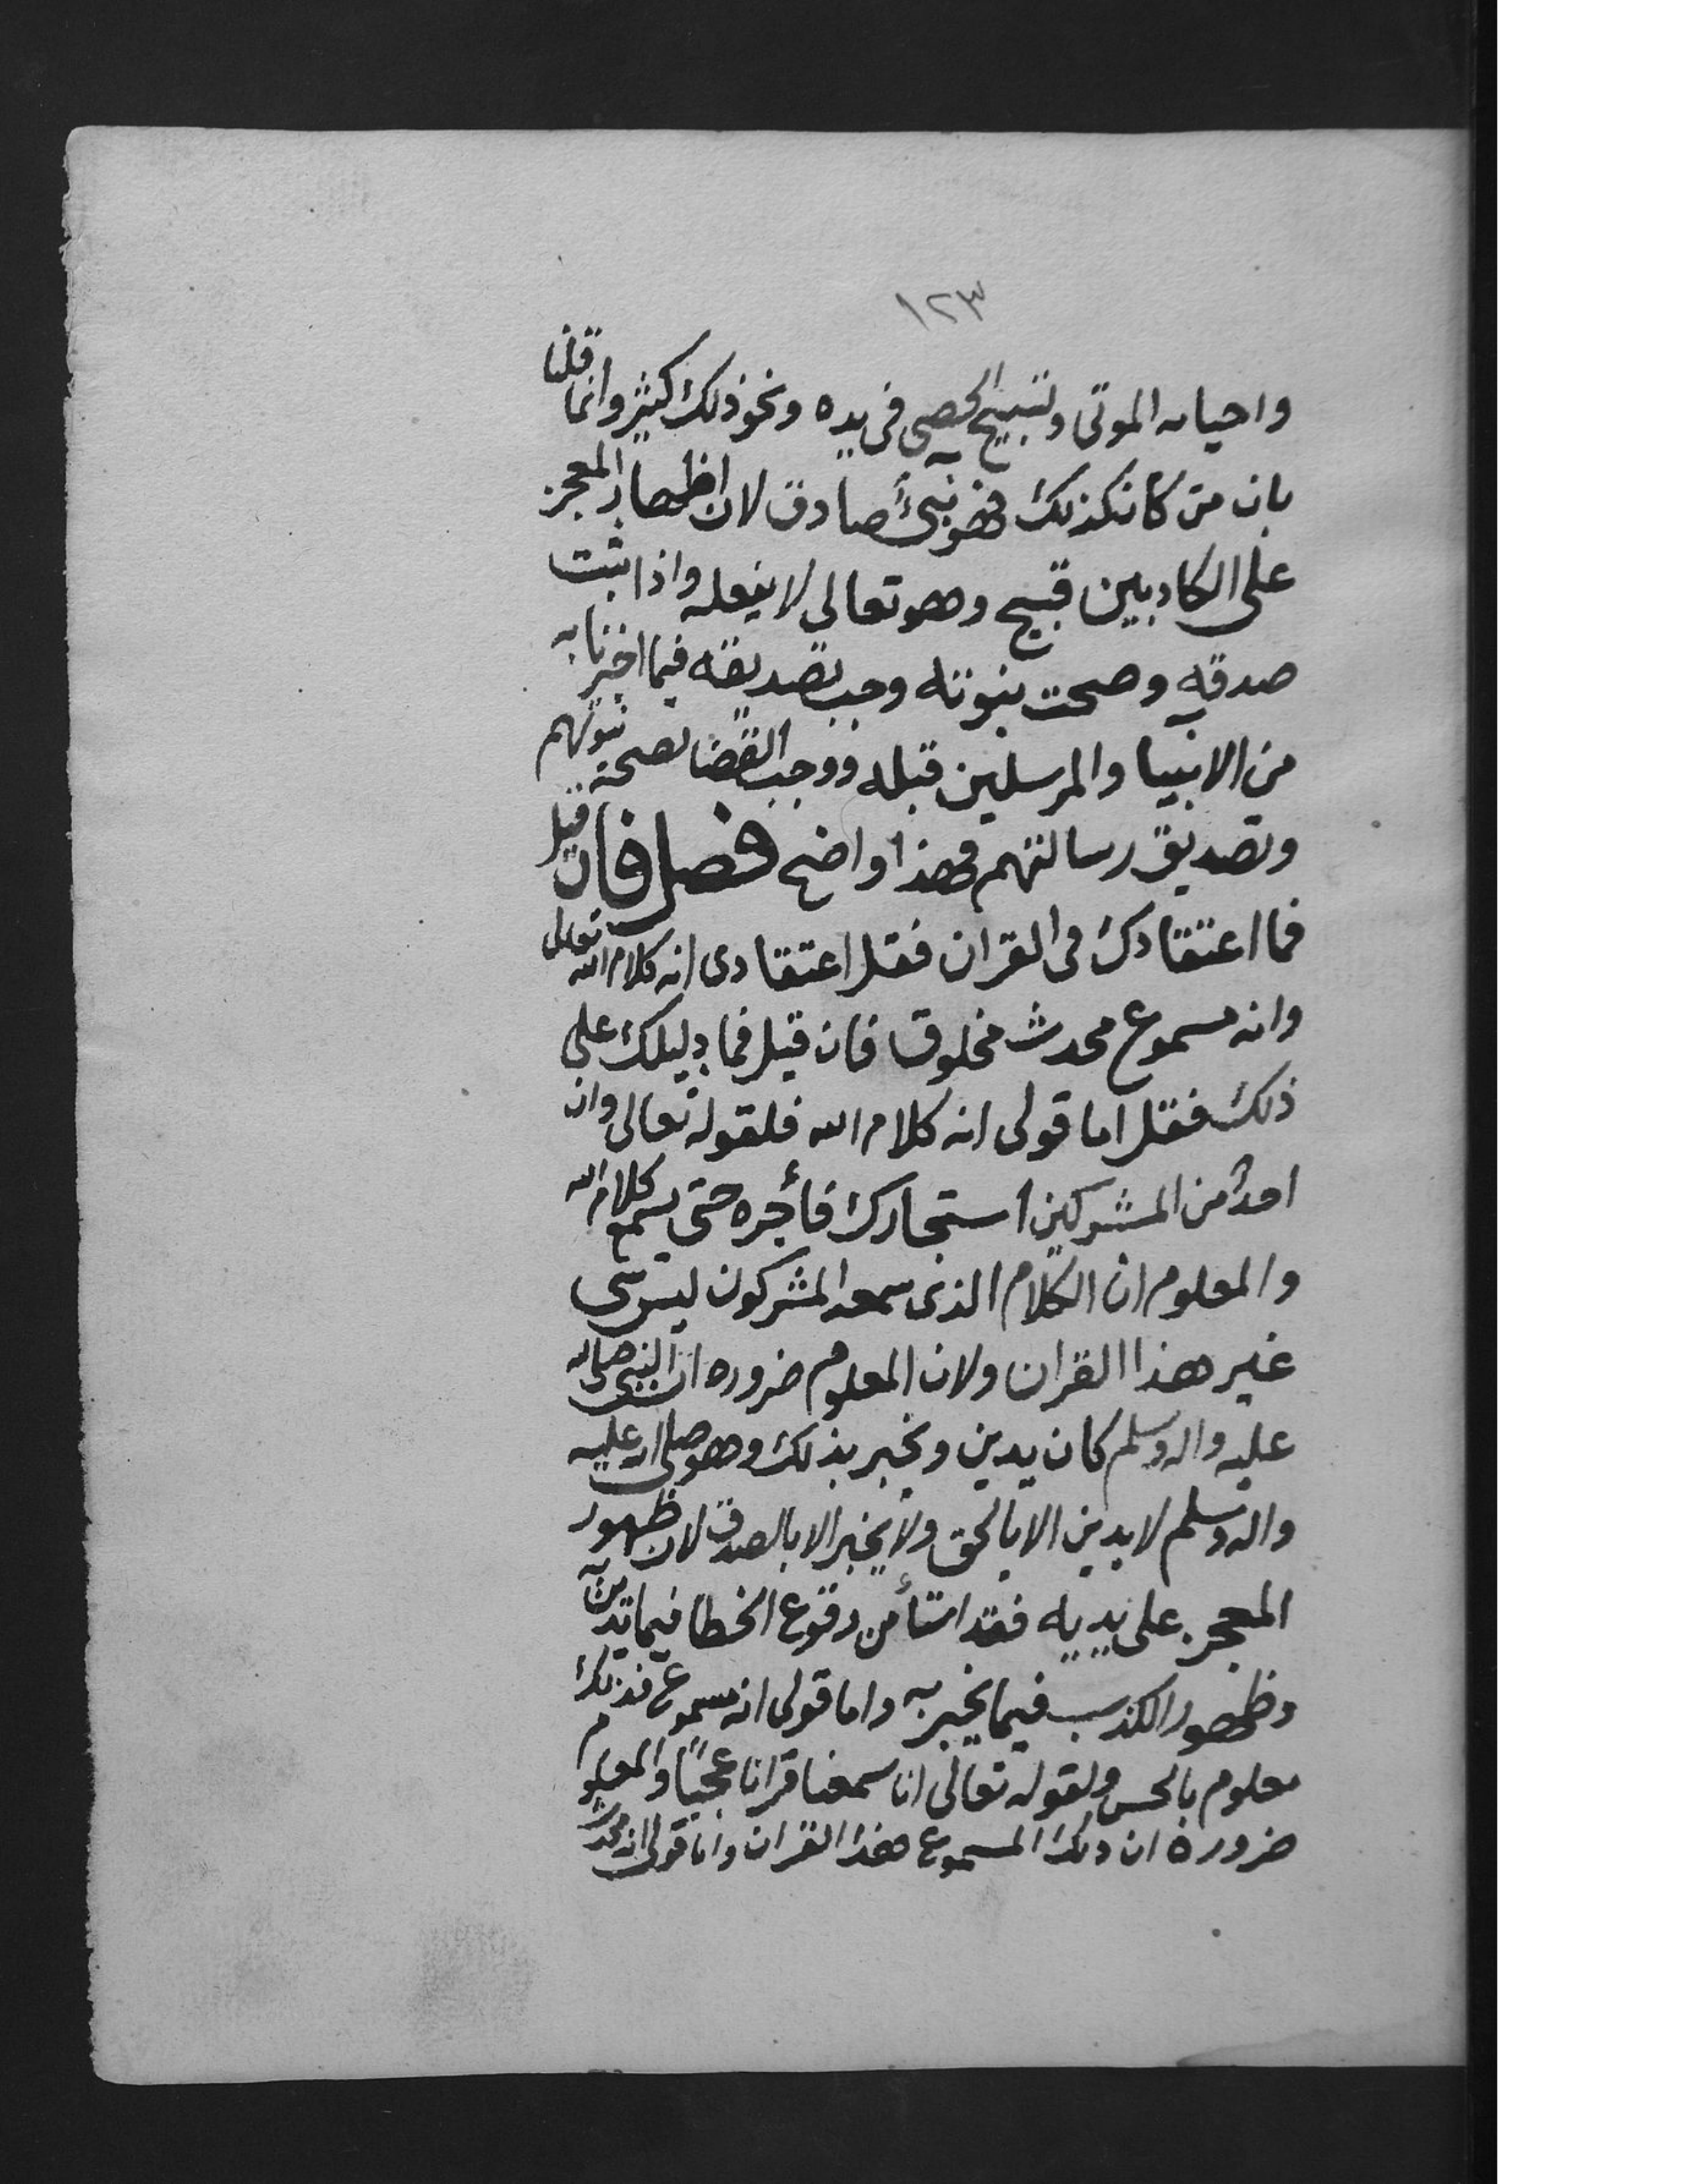 ١٢٣
واحيائه الموتى وتسبيح الحصى فى يده ونحو ذلك كثير وانما قلنا
بان من كان كذلك فهو نبىٌ صادق لان اظهار المعجز
على الكاذبين قبيح وهو تعالى لا يفعله واذا ثبت
صدقه وصحت نبوته وجب تصديقه فيما اخبرنا به
من الانبيا والمرسلين قبله ووجب القضا بصحة نبوتهم
وتصديق رسالتهم فهذا واضح فصل فان قيل
فما اعتقادك فى القران فقل اعتقادى انه كلام الله تعالى
وانه مسموع محدث مخلوق فان قيل فما دليلك على
ذلك فقل اما قولى انه كلام الله فلقوله تعالى وان
احدٌ من المشركين استجارك فأجره حتى يسمع كلام الله
والمعلوم ان الكلام الذى سمعه المشركون ليس شى
غير هذا القران ولان المعلوم ضروره ان النبى صلى الله
عليه واله وسلم كان يدين ويخبر بذلك وهو صلى الله عليه
واله وسلم لا يدين الا بالحق ولا يخبر الا بالصدق لان ظهور
المعجز على يديه فقد استأمن وقوع الخطا فيما يدين به
وظهور الكذب فيما يخبر به واما قولى انه مسموع فذلك
معلوم بالحس ولقوله تعالى انا سمعنا قرانا عجبًا والمعلوم
ضرورة ان ذلك المسموع هذا القران واما قولى انه محدث